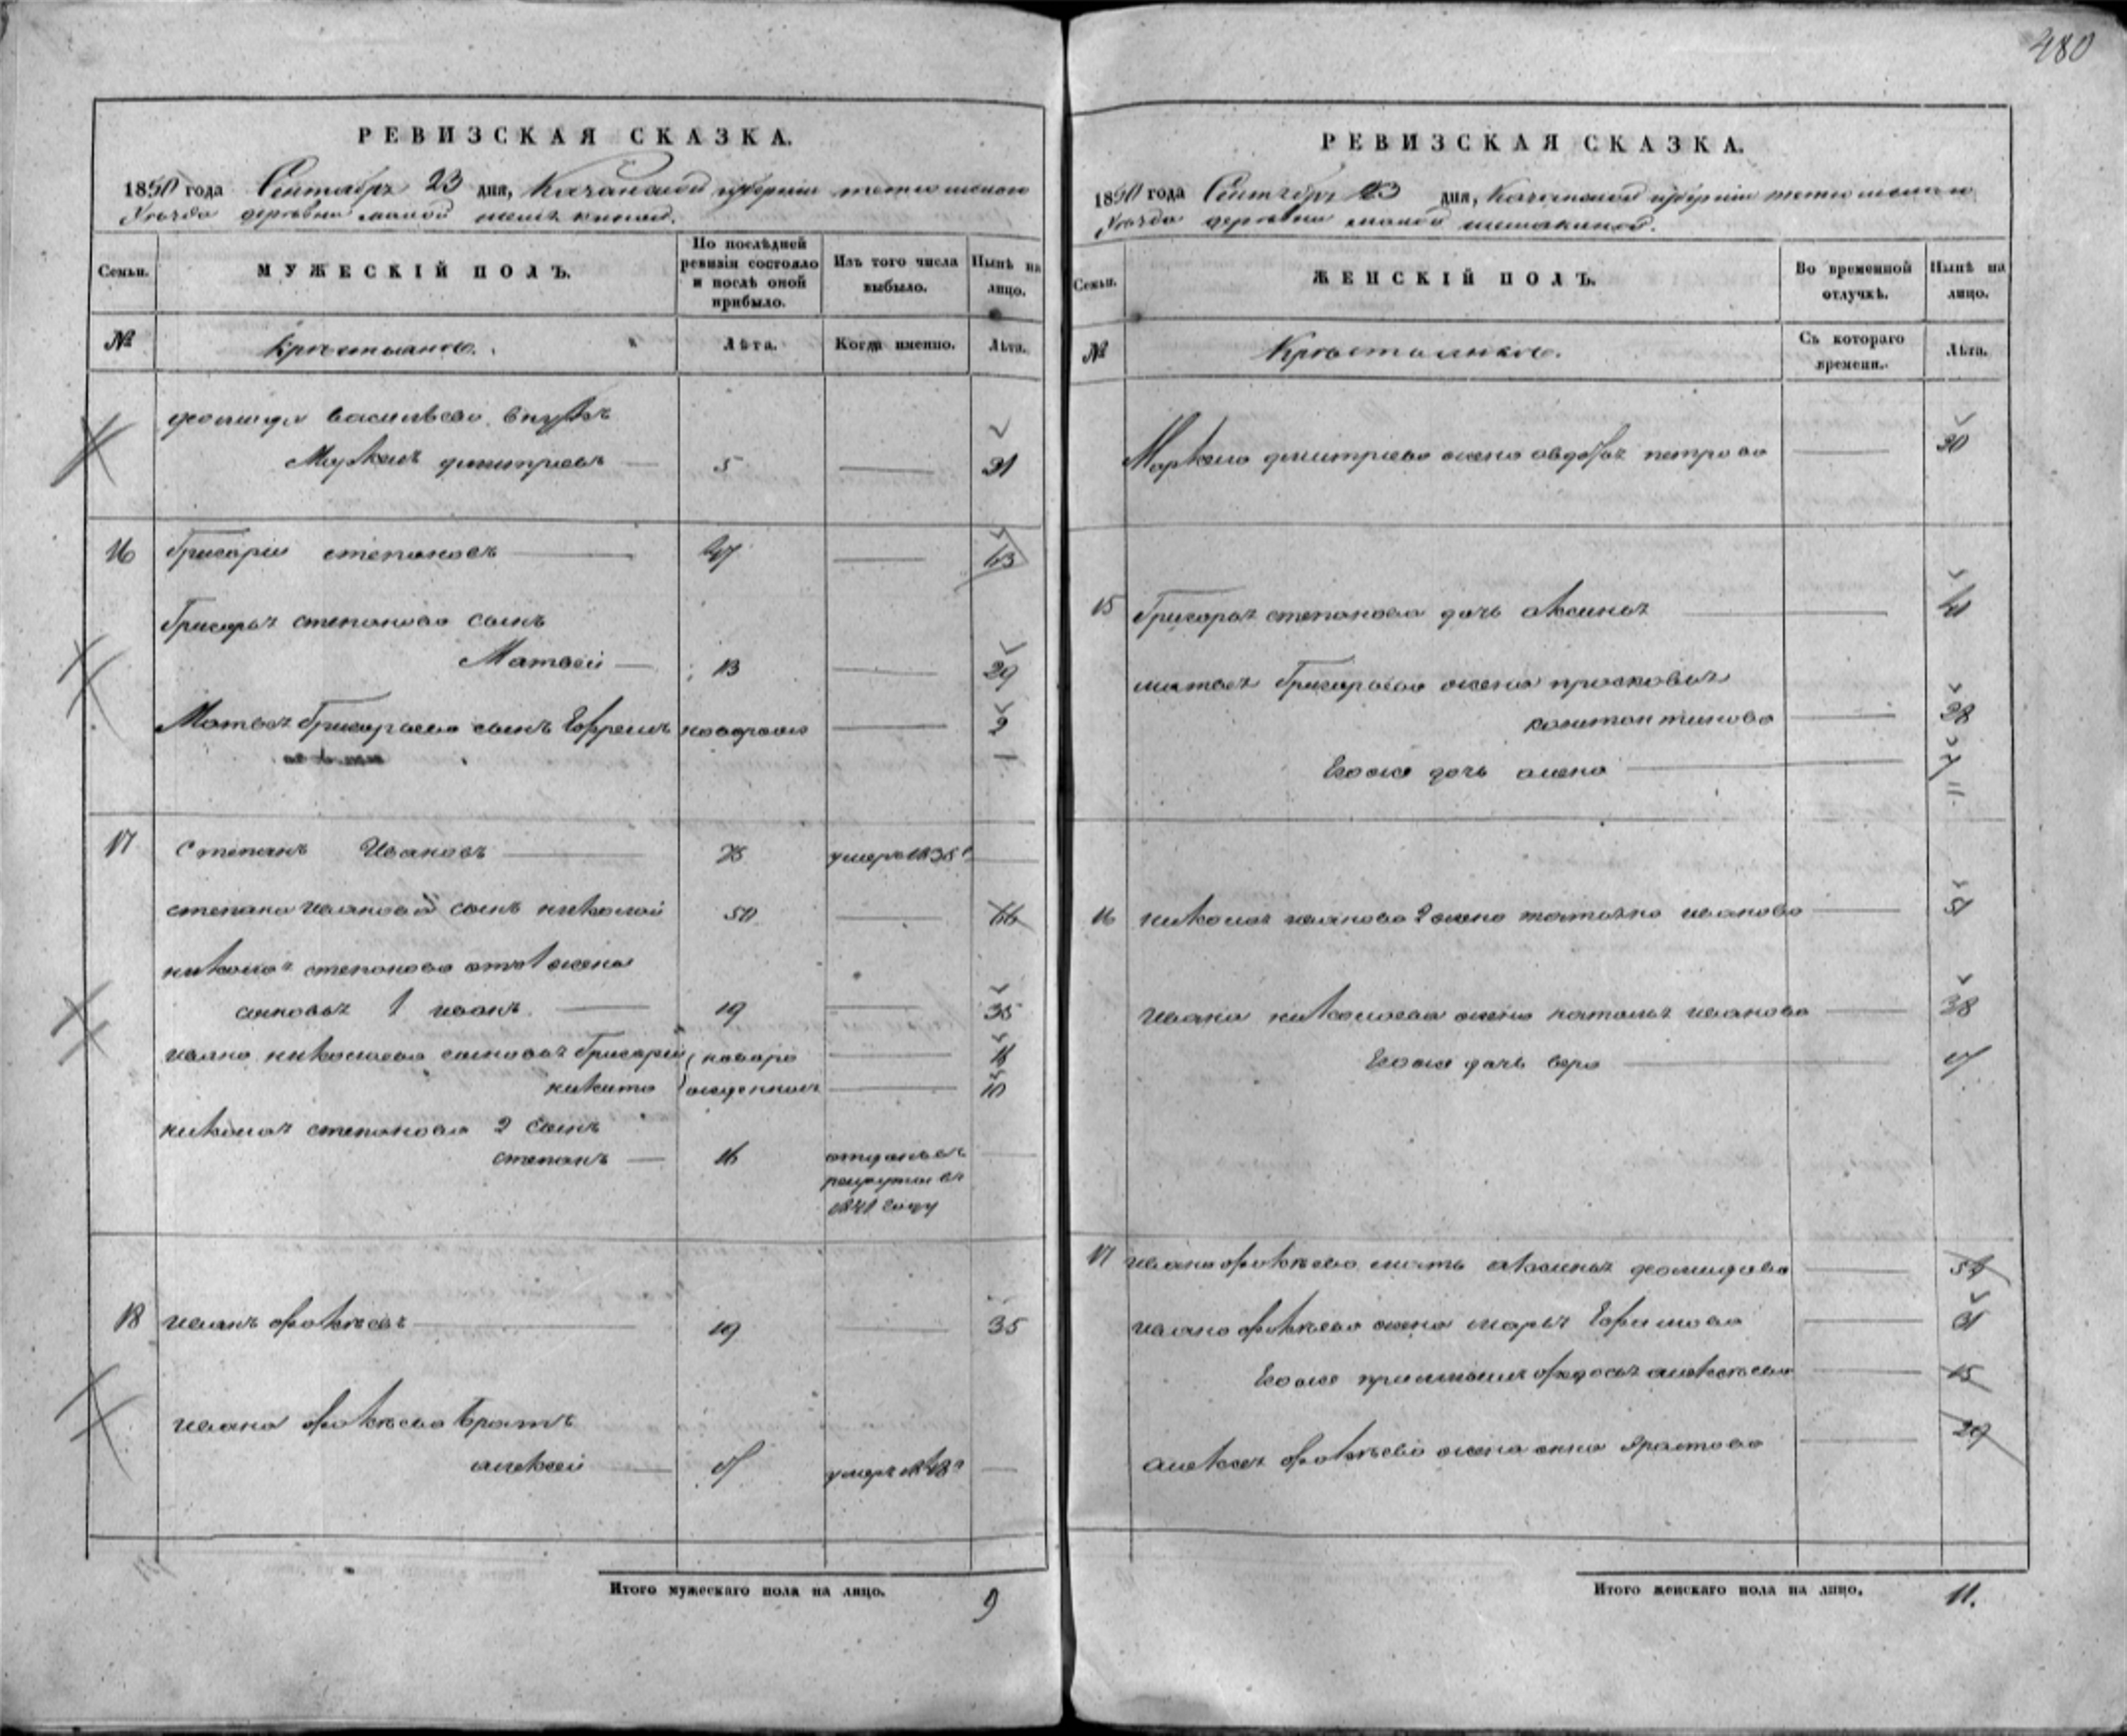 480
РЕВИЗСКАЯ СКАЗКА.
1850 года Сентябрь 23 дня, Казанской губернии тетюшскаго
Уезда деревни малой шемякиной.
Семьи. МУЖЕСКІЙ ПОЛЪ. По послѣдней ревизіи состояло и послѣ оной прибыло. Изъ того числа выбыло. Нынѣ на лицо.
№ Крестьяне. Лѣта. Когда именно. Лѣта.
васильева внукъ
Маркелъ дмитриевъ 5 31
16 Григорій степановъ 47 63
Григорья степанова сынъ
Матвей 13 29
Матвея Григорьева сынъ Ефремъ новорож 2
17 Степанъ Ивановъ 75 умеръ 1835
степана иванова сынъ николай 50 66
николая степанова жены
сыновья 1 иванъ 19 35
ивана николаева сыновья Григорей новоро 16
никита жденныя 10
николая степанова 2 сынъ
степанъ 16 отданъ въ
рекруты въ
1841 году
18 иванъ фокеевъ 19 35
ивана фокеева братъ
алексей умеръ
Итого мужескаго пола на лицо. 9
РЕВИЗСКАЯ СКАЗКА.
1850 года Сентября 23 дня, Казанской губерніи тетюшскаго
Уезда деревни малой шемякиной.
Семьи. ЖЕНСКІЙ ПОЛЪ. Во временной отлучкѣ. Нынѣ на лицо.
№ Крестьянкою. Съ котораго времени. Лѣта.
Маркела дмитриева жена авдотья петрова 30
15 Григорья степанова дочь аксинья
матвея Григорьева жена прасковья
константинова 28
Егоже дочь алена
16 николая иванова 2 жена татьяна иванова 51
ивана николаева жена наталья иванова 38
Егоже дочь вера
17 ивана фокеева мать аксинья 54
ивана фокеева жена марья Ефимова 31
Егоже федосья алексеева 15
алексея фокеева жена анна 29
Итого женскаго пола на лицо. 11.